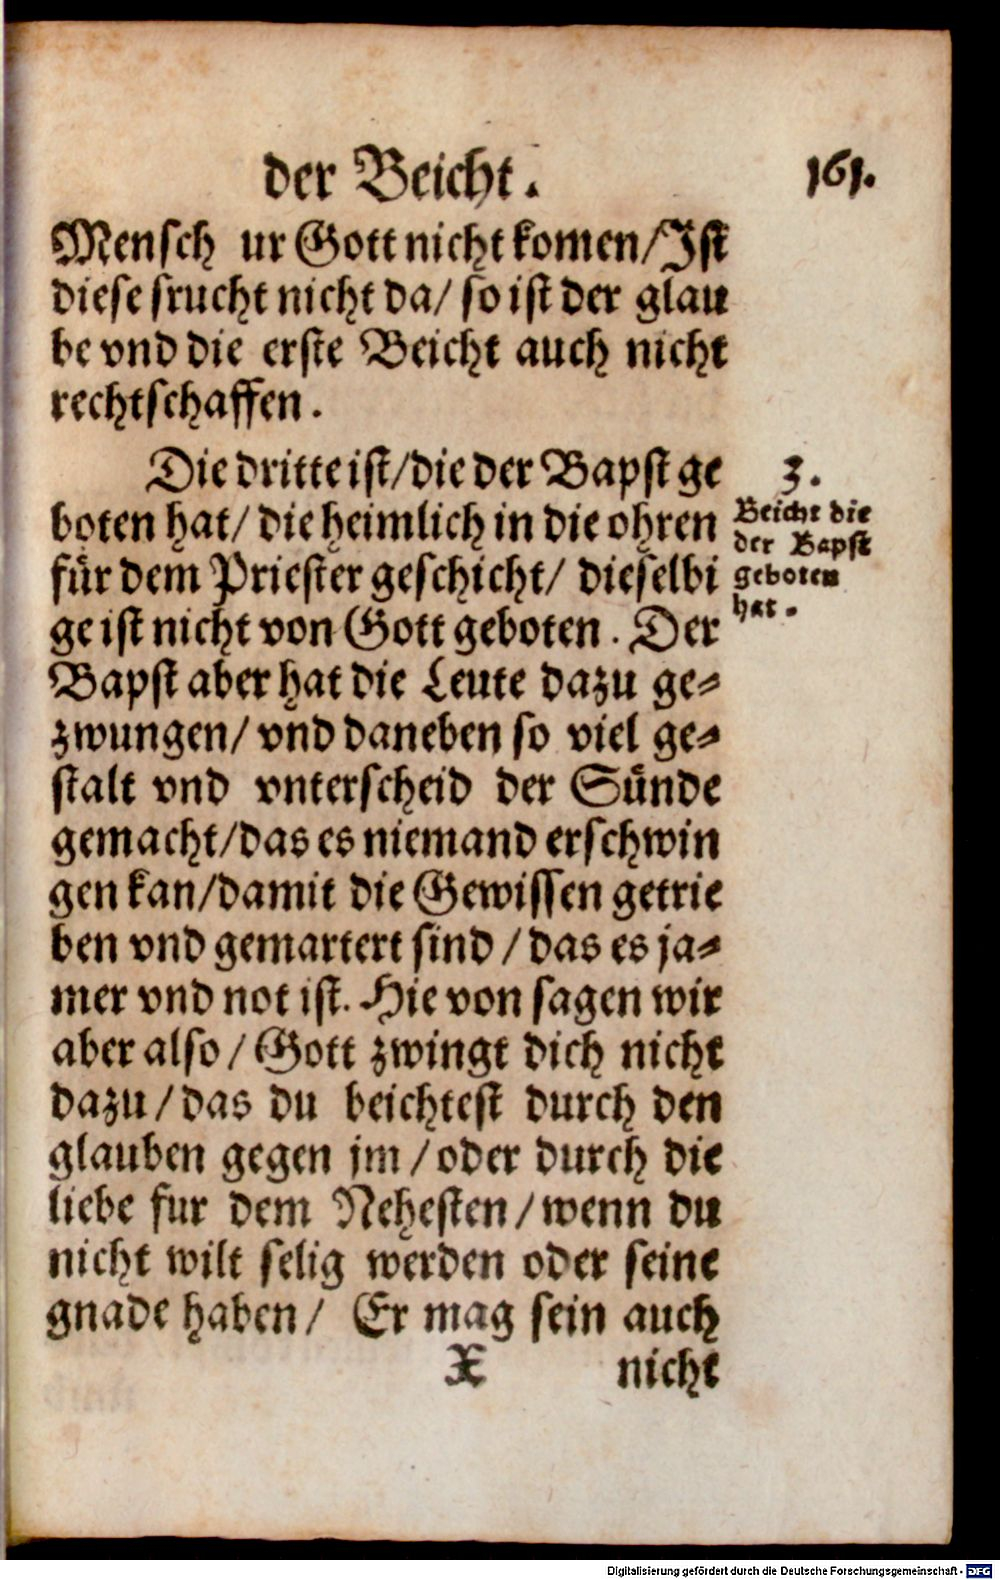 der Beicht.
161.
Mensch ur Gott nicht komen/Ist
diese srucht nicht da/ so ist der glau
be vnd die erste Beicht auch nicht
rechtschaffen.
Die dritte ist/die der Bapst ge
boten hat/ die heimlich in die ohren
für dem Priester geschicht/ dieselbi
ge ist nicht von Gott geboten. Der
Bapst aber hat die Leute dazu ge⸗
zwungen/ vnd daneben so viel ge⸗
stalt vnd vnterscheid der Sünde
gemacht/das es niemand erschwin
gen kan/damit die Gewissen getrie
ben vnd gemartert sind/das es ja⸗
mer vnd not ist. Hie von sagen wir
aber also/ Gott zwingt dich nicht
dazu/das du beichtest durch den
glauben gegen jm/oder durch die
liebe fur dem Nehesten/wenn du
nicht wilt selig werden oder seine
gnade haben/ Er mag sein auch
X nicht
3.
Beicht die
der Bapst
geboten
hat.
Digitalisierung gefördert durch die Deutsche Forschungsgemeinschaft - DFG